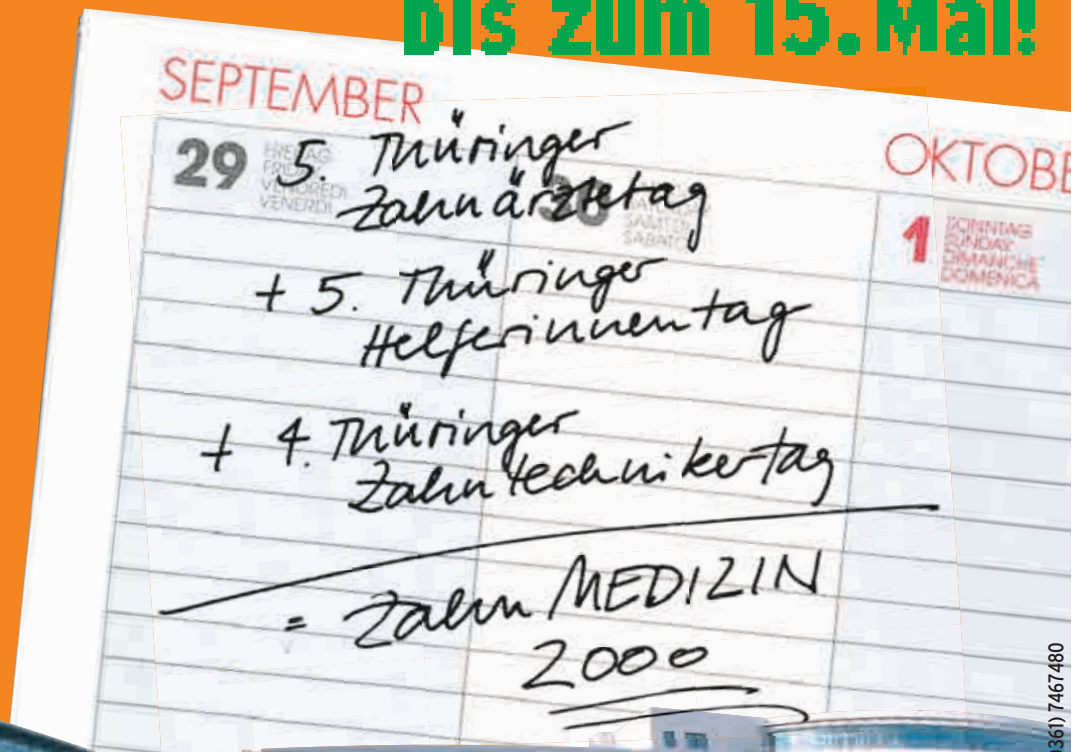 bis zum 15. Mai!
SEPTEMBER
29 FREITAG
FRIDAY
VENDREDI
VENERDI
5. Thüringer
Zahnärztetag
30
SAMEDI
SABATO
+ 5. Thüringer
Helferinnentag
+ 4. Thüringer
Zahntechnikertag
= Zahn MEDIZIN
2000
OKTOBE
1 SONNTAG
SUNDAY
DIMANCHE
DOMENICA
0361) 7467480